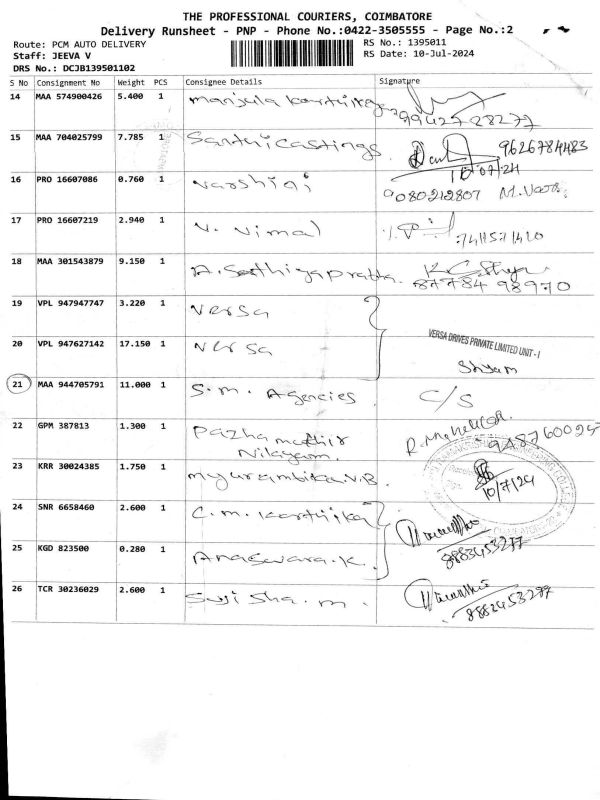 THE PROFESSIONAL COURIERS, COIMBATORE
Delivery Runsheet - PNP - Phone No.:0422-3505555 - Page No.:2
Route: PCM AUTO DELIVERY
RS No.: 1395011
Staff: JEEVA V
RS Date: 10-Jul-2024
DRS No.: DCJB139501102
S No Consignment No Weight PCS Consignee Details Signature
14 MAA 574900426 5.400 1 manjula karthikey 9942728277
15 MAA 704025799 7.785 1 Santhicastings 9626784483
10/07/24
16 PRO 16607086 0.760 1 varshini 9080212807 M.
17 PRO 16607219 2.940 1 V. Vimal
18 MAA 301543879 9.150 1 A. Sathiyapratha.
8778498970
19 VPL 947947747 3.220 1 versa
VERSA DRIVES PRIVATE LIMITED UNIT-I
20 VPL 947627142 17.150 1 versa
Shyam
21 MAA 944705791 11.000 1 S.m. Agencies C/S
22 GPM 387813 1.300 1 Pazhamuthir
Nilayam.
23 KRR 30024385 1.750 1 myurambika.V.B
10/7/24
24 SNR 6658460 2.600 1 C.m. Karthika
8883453277
25 KGD 823500 0.280 1 Anaswara.K.
26 TCR 30236029 2.600 1 Suji Sha.m.
8883453277